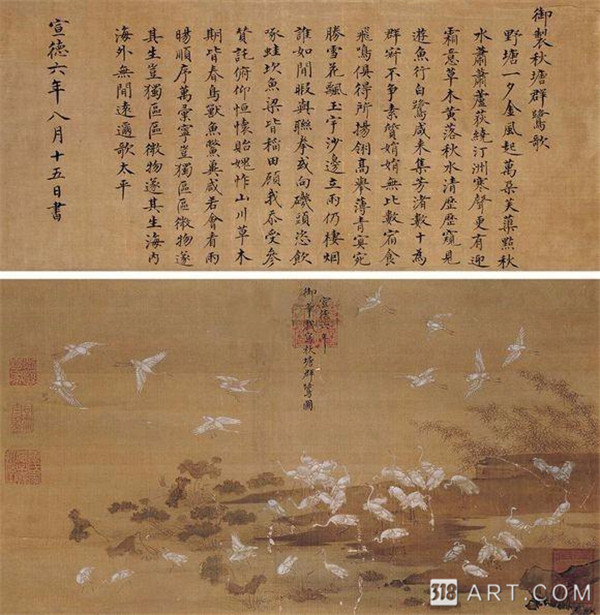 御製秋塘群鷺歌
野塘一夕金風起萬朵芙蕖點秋
水蕭蕭蘆荻繞汀洲寒聲更有迎
霜意草木黃落秋水清歷歷窺見
遊魚行白鷺咸来集芳渚數十為
群寧不爭素質娟娟無比數宿食
飛鳴俱得所揚翎高舉薄青冥宛
勝雪花飄玉宇沙邊立雨仍棲烟
誰如閒暇與聯拳或向磯頭恣飲
啄蛙坎魚梁皆稻田顧我忝受參
贊託俯仰恒懷貽媿怍山川草木
期皆春鳥獸魚鱉冀咸若會看雨
暘順序萬彙寧豈獨區區微物遂
其生豈獨區區微物遂其生海内
海外無間遠邇歌太平
宣德六年八月十五日書
宣德六年
御筆秋塘群鷺圖
318ART.COM